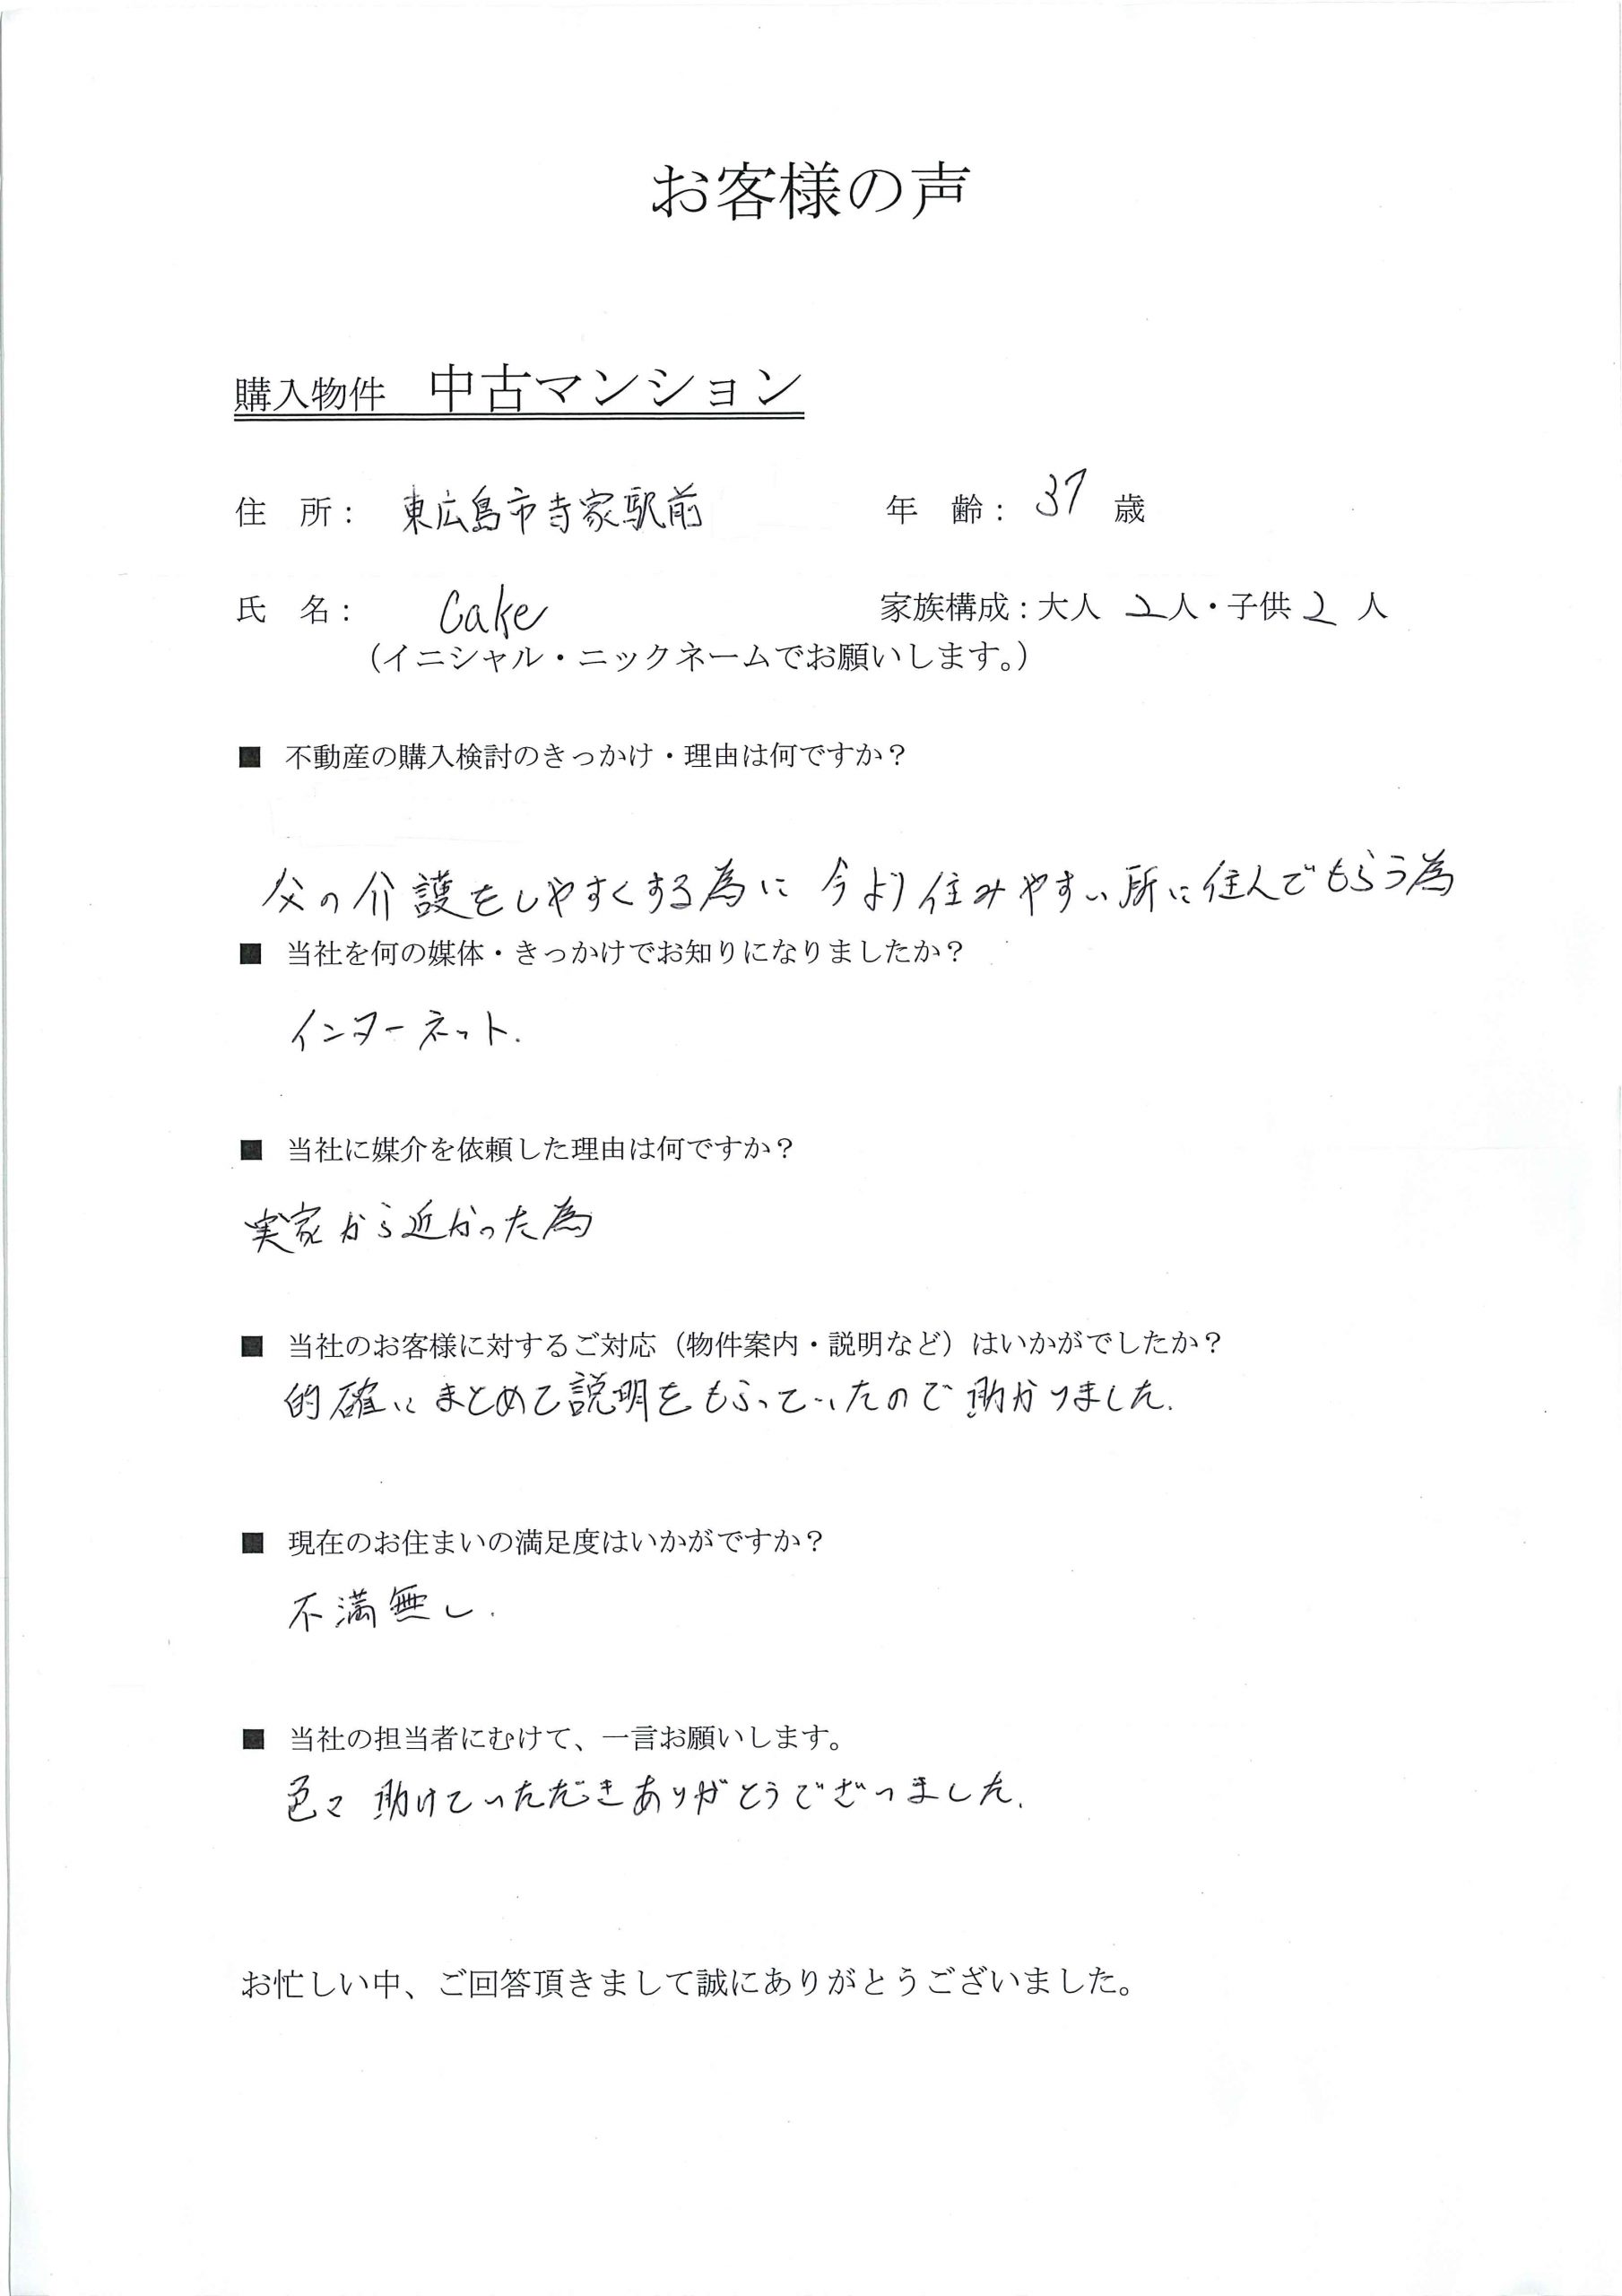 お客様の声
購入物件　中古マンション
住　所：　東広島市寺家駅前　年　齢：37 歳
氏　名：　Cake　家族構成：大人 2人・子供 2 人
（イニシャル・ニックネームでお願いします。）
■ 不動産の購入検討のきっかけ・理由は何ですか？
父の介護をしやすくする為に 今より住みやすい所に住んでもらう為
■ 当社を何の媒体・きっかけでお知りになりましたか？
インターネット.
■ 当社に媒介を依頼した理由は何ですか？
実家から近かった為
■ 当社のお客様に対するご対応（物件案内・説明など）はいかがでしたか？
的確にまとめて説明をもらっていたので助かりました.
■ 現在のお住まいの満足度はいかがですか？
不満無し.
■ 当社の担当者にむけて、一言お願いします。
色々助けていただきありがとうございました.
お忙しい中、ご回答頂きまして誠にありがとうございました。